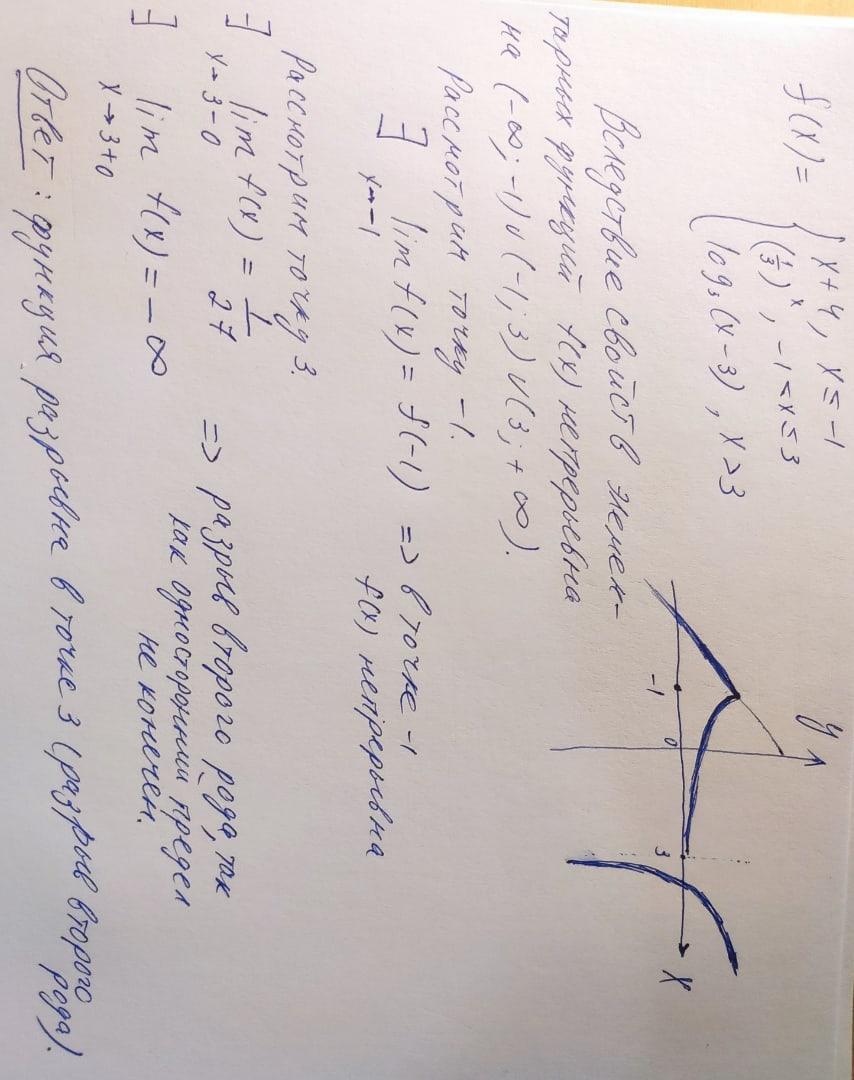 f(x) = { x+4, x ≤ -1
(1/3)^x, -1 < x ≤ 3
log₃(x-3), x > 3
y
-1
0
3
x
Вследствие свойств элемен-
тарных функций f(x) непрерывна
на (-∞; -1) ∪ (-1; 3) ∪ (3; +∞).
Рассмотрим точку -1.
∃ lim f(x) = f(-1) => в точке -1
x→-1 f(x) непрерывна
Рассмотрим точку 3.
∃ lim f(x) = 1/27
x→3-0
∃ lim f(x) = -∞
x→3+0
=> разрыв второго рода, так
как односторонний предел
не конечен.
Ответ: функция разрывна в точке 3 (разрыв второго
рода).